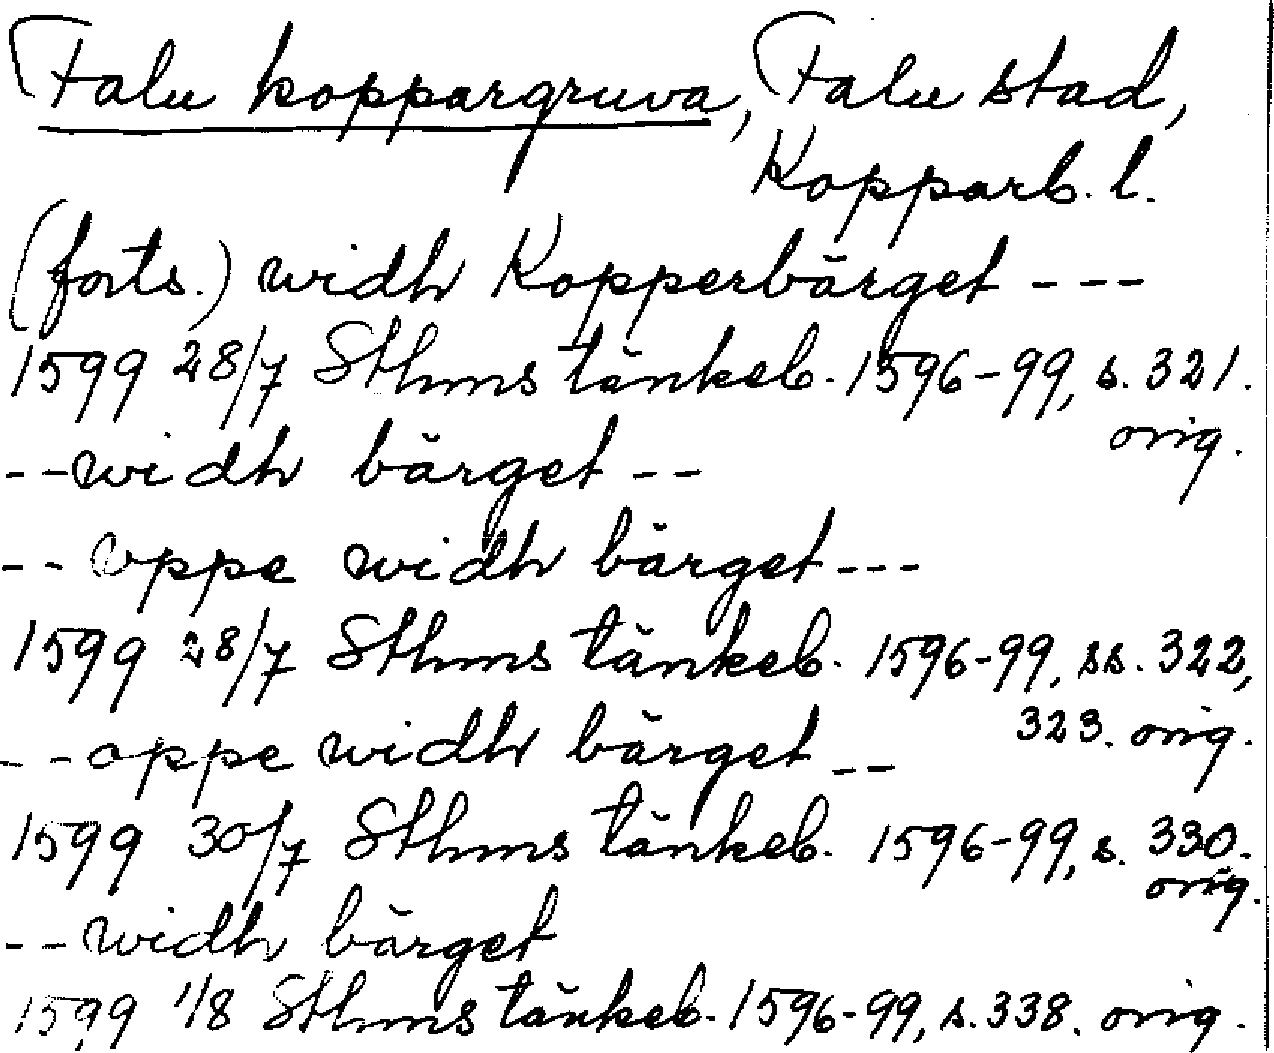 Falu koppargruva, Falu stad,
Kopparb. l.
(forts.) widh Kopperbärget ---
1599 28/7 Sthms tänkeb. 1596-99, s. 321.
orig.
--widh bärget --
-- oppe widh bärget ---
1599 28/7 Sthms tänkeb. 1596-99, ss. 322,
323. orig.
--oppe widh bärget --
1599 30/7 Sthms tänkeb. 1596-99, s. 330.
orig.
--widh bärget
1599 1/8 Sthms tänkeb. 1596-99, s. 338. orig.